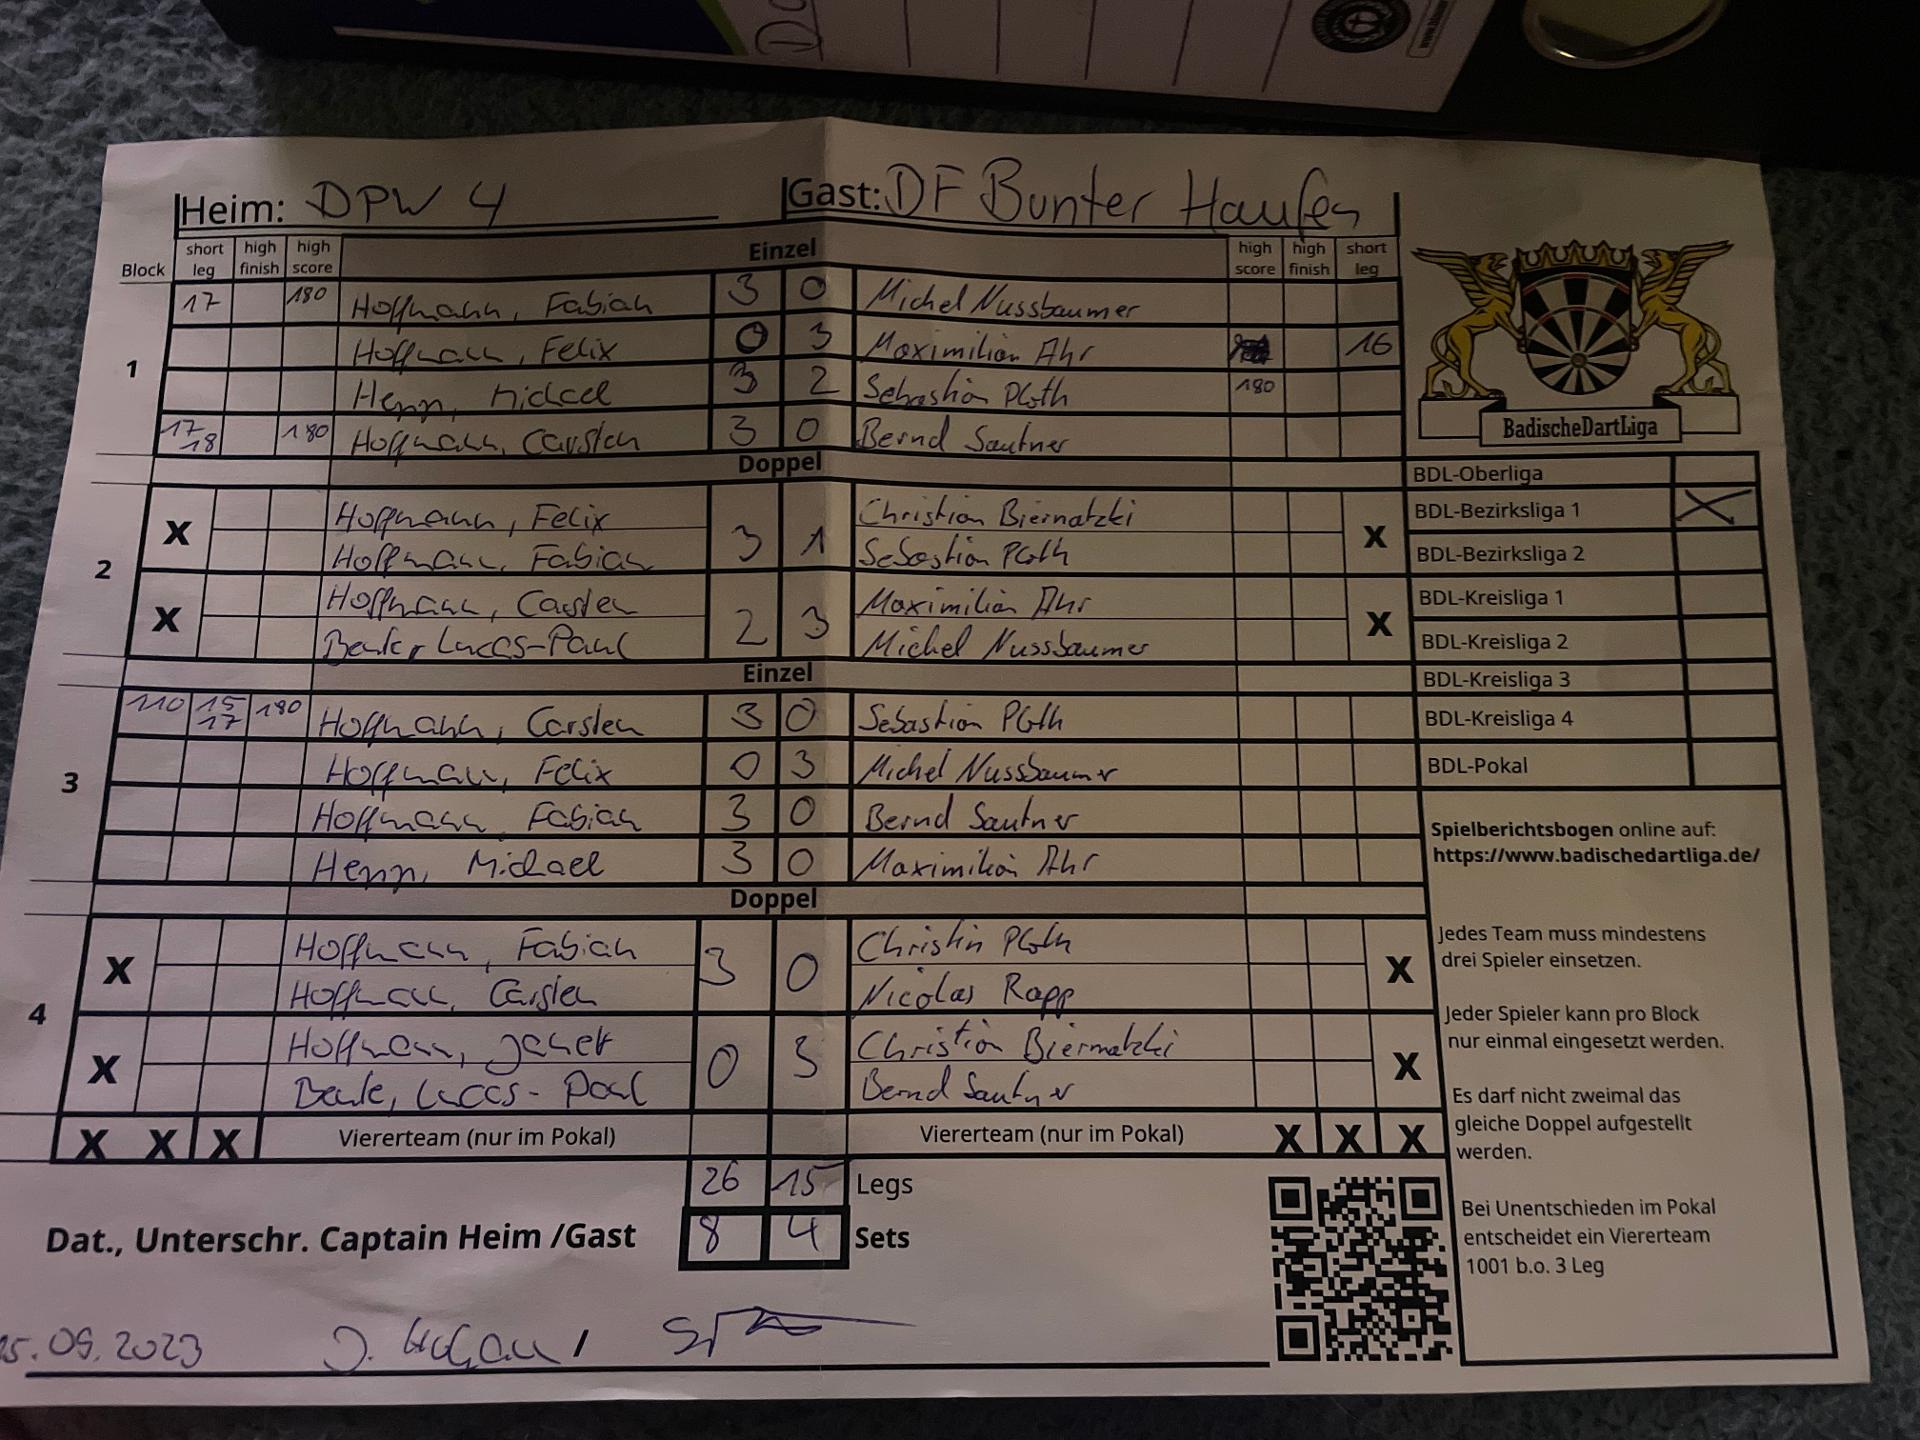 Heim: DPW 4 Gast: DF Bunter Haufen
Block short leg high finish high score Einzel high score high finish short leg
1
17 180 Hoffmann, Fabian 3 0 Michel Nussbaumer
Hoffmann, Felix 0 3 Maximilian Ahr 16
Henn, Michael 3 2 Sebastian Ploth 180
17 18 180 Hoffmann, Carsten 3 0 Bernd Sautner
Doppel
2
X Hoffmann, Felix 3 1 Christian Biernatzki X
Hoffmann, Fabian Sebastian Ploth
X Hoffmann, Carsten 2 3 Maximilian Ahr X
Lucas-Paul Michel Nussbaumer
Einzel
3
110 15 17 180 Hoffmann, Carsten 3 0 Sebastian Ploth
Hoffmann, Felix 0 3 Michel Nussbaumer
Hoffmann, Fabian 3 0 Bernd Sautner
Henn, Michael 3 0 Maximilian Ahr
Doppel
4
X Hoffmann, Fabian 3 0 Christin Ploth X
Hoffmann, Carsten Nicolas Rapp
X Hoffmann, Janet 0 3 Christian Biernatzki X
Lucas-Paul Bernd Sautner
X X X Viererteam (nur im Pokal) Viererteam (nur im Pokal) X X X
26 15 Legs
Dat., Unterschr. Captain Heim /Gast 8 4 Sets
15.09.2023 /
BadischeDartLiga
BDL-Oberliga
BDL-Bezirksliga 1 X
BDL-Bezirksliga 2
BDL-Kreisliga 1
BDL-Kreisliga 2
BDL-Kreisliga 3
BDL-Kreisliga 4
BDL-Pokal
Spielberichtsbogen online auf:
https://www.badischedartliga.de/
Jedes Team muss mindestens
drei Spieler einsetzen.
Jeder Spieler kann pro Block
nur einmal eingesetzt werden.
Es darf nicht zweimal das
gleiche Doppel aufgestellt
werden.
Bei Unentschieden im Pokal
entscheidet ein Viererteam
1001 b.o. 3 Leg